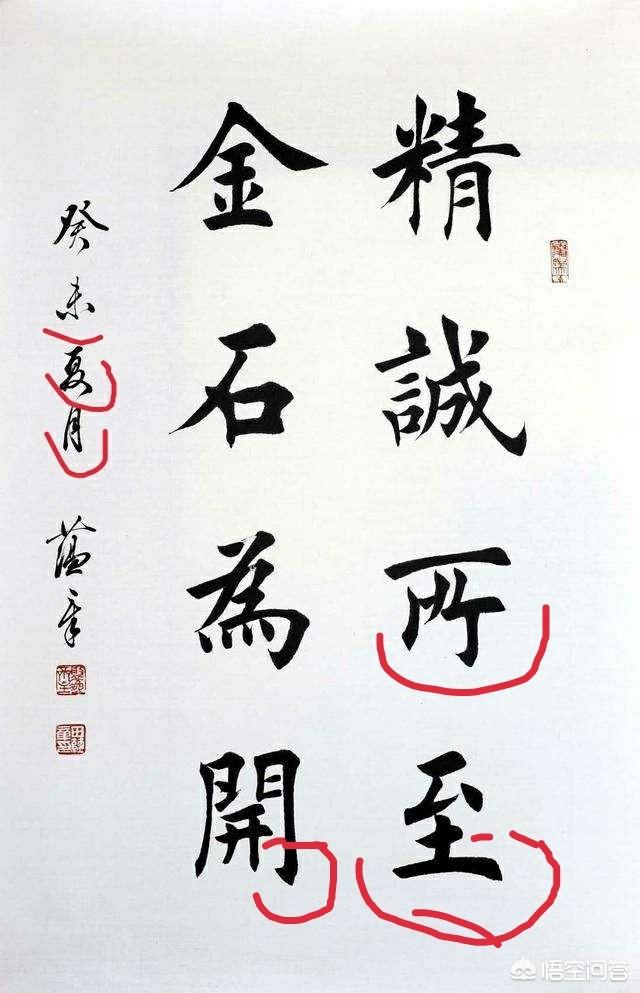 精誠所至
金石為開
癸未夏月 蘊章
悟空问答